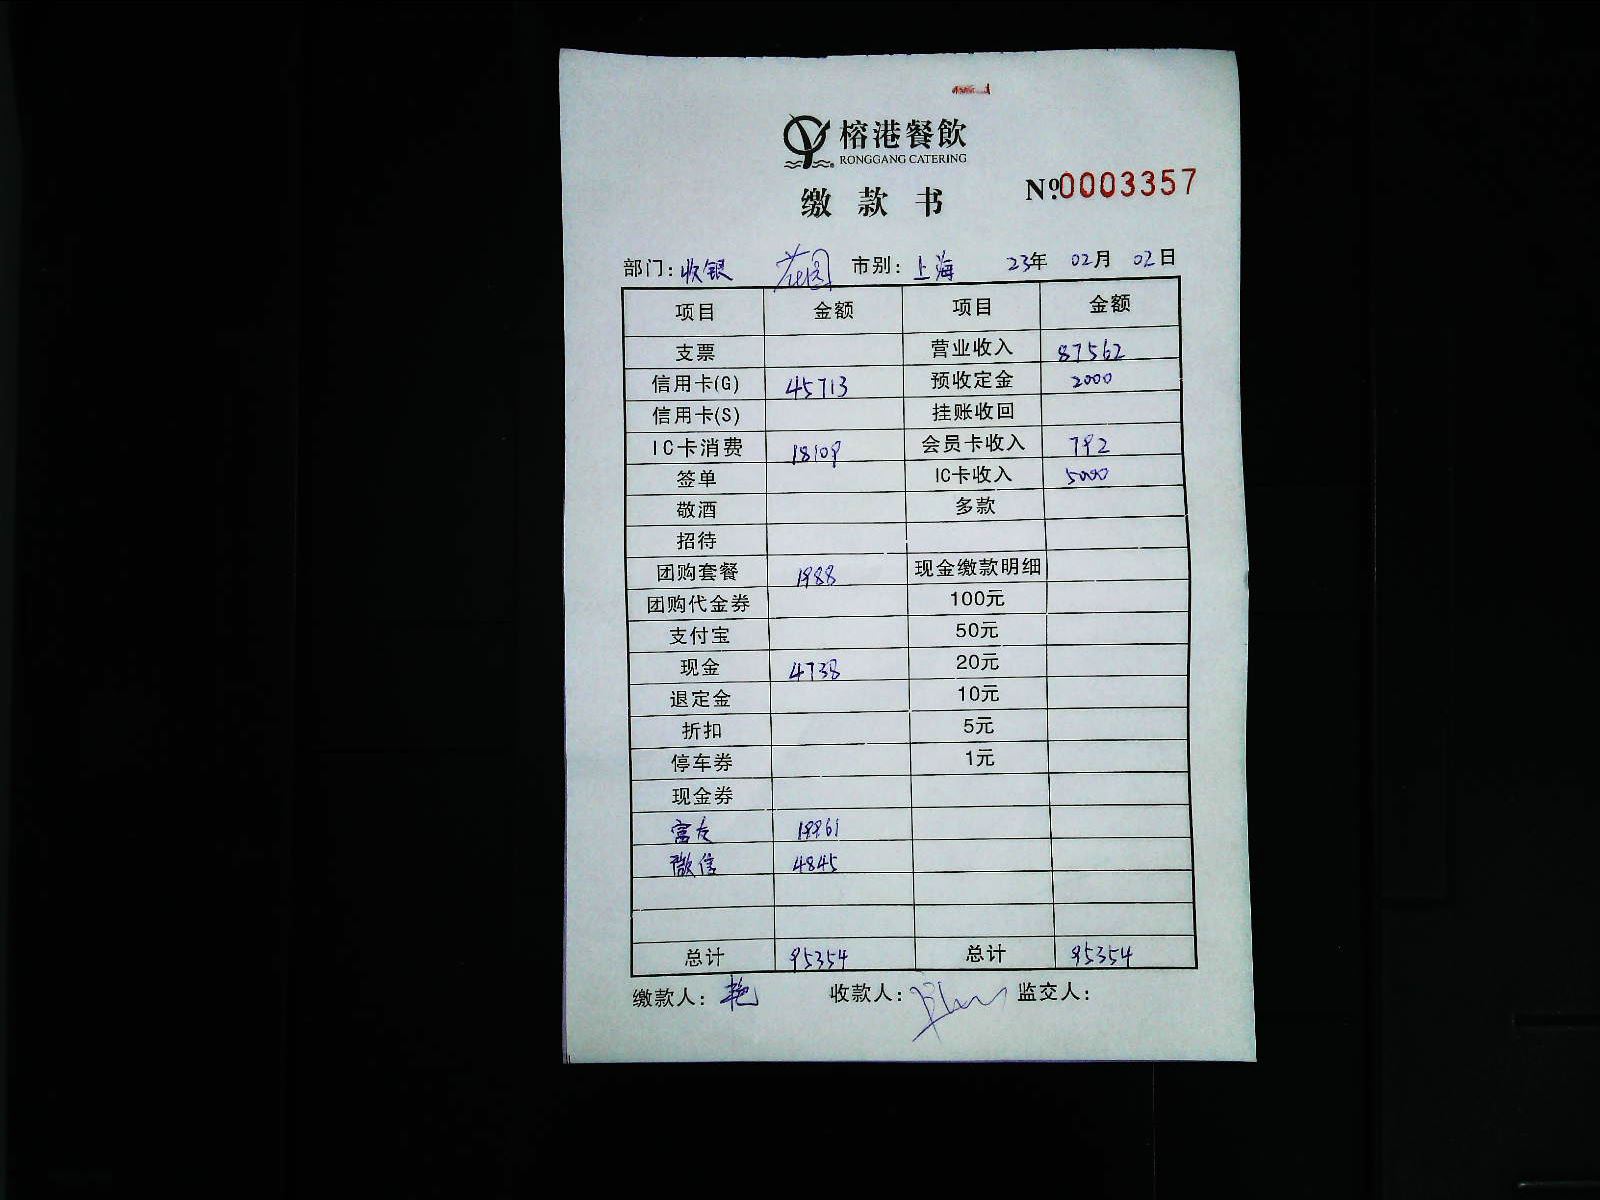 榕港餐飲
RONGGANG CATERING
缴款书 Nº.0003357
部门:收银 花园 市别:上海 23年 02月 02日
项目 金额 项目 金额
支票 营业收入 87562
信用卡(G) 45713 预收定金 2000
信用卡(S) 挂账收回
IC卡消费 18109 会员卡收入 792
签单 IC卡收入 5000
敬酒 多款
招待
团购套餐 1988 现金缴款明细
团购代金券 100元
支付宝 50元
现金 4738 20元
退定金 10元
折扣 5元
停车券 1元
现金券
富友 19961
微信 4845
总计 95354 总计 95354
缴款人:艳 收款人: 监交人: